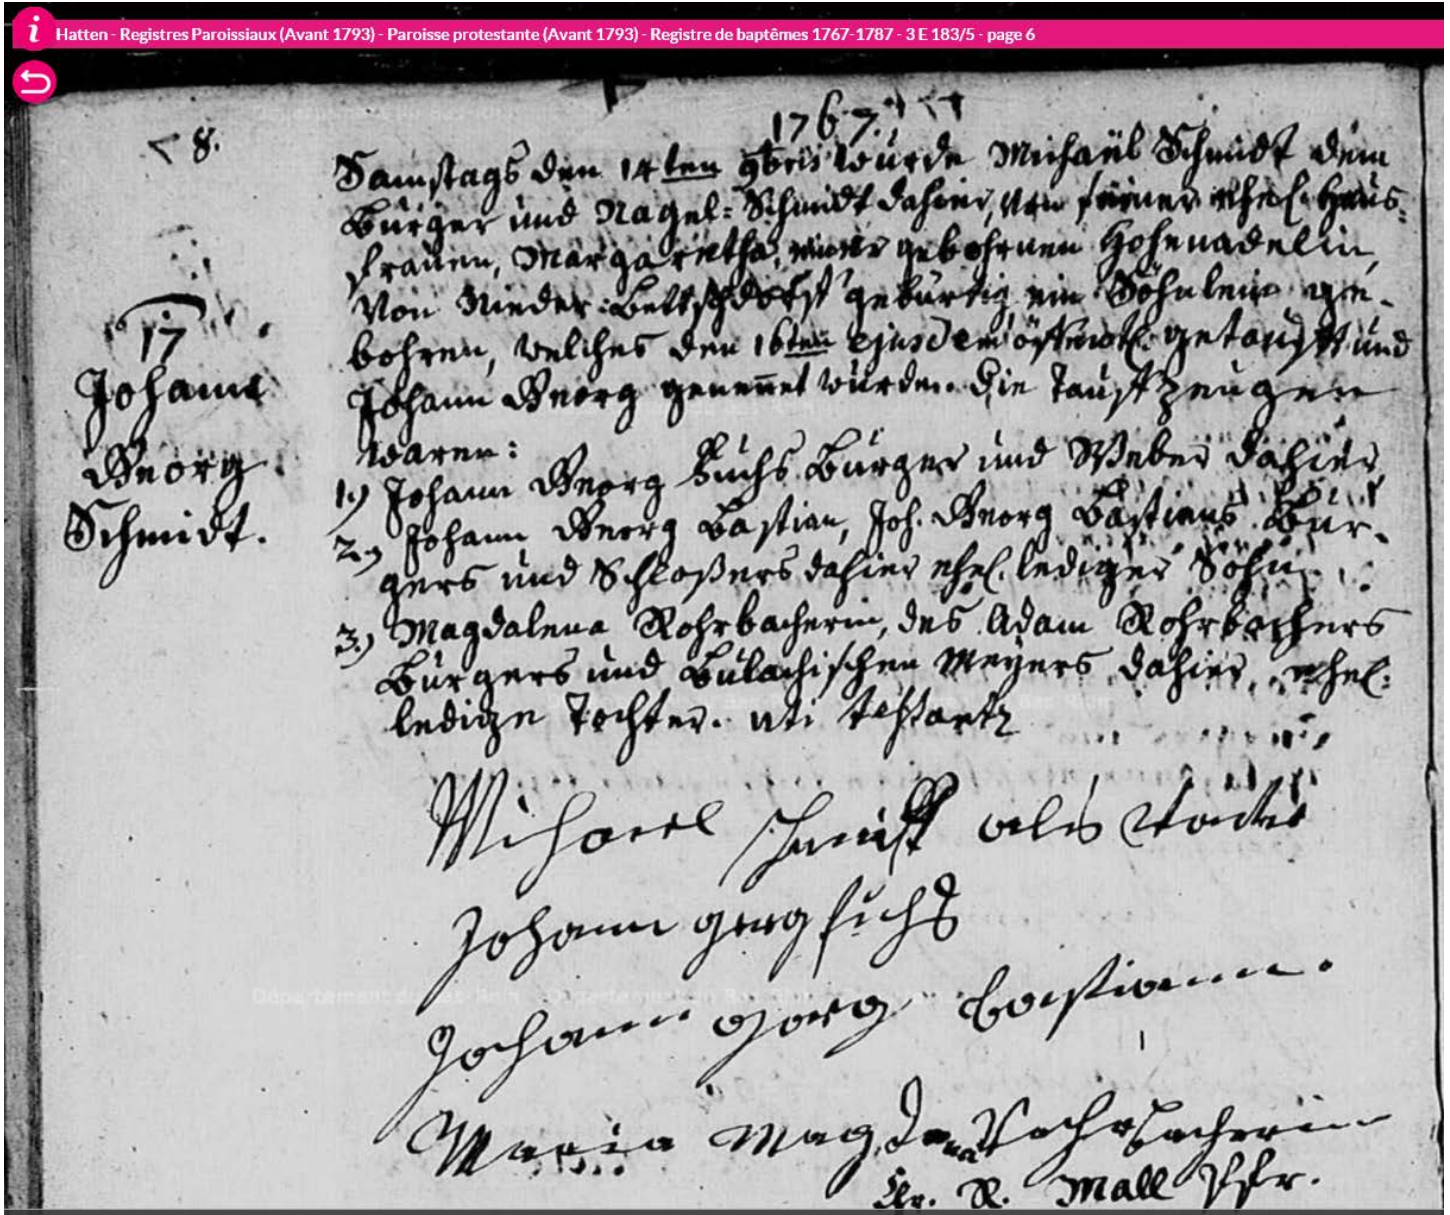 Hatten - Registres Paroissiaux (Avant 1793) - Paroisse protestante (Avant 1793) - Registre de baptêmes 1767-1787 - 3 E 183/5 - page 6
8.
1767.
Samstags den 14ten 9bris wurde Michaël Schmidt dem
Burger und Nagel-Schmidt dahier, von seiner ehel. Haus-
frauen, Margaretha, einer gebohrnen Hohenadelin,
von Nieder-Bettschdorff gebürtig ein Söhnlein ge-
bohren, welches den 16ten ejusdem öffentl. getaufft und
Johann Georg genennet wurde. Die Tauffzeugen
waren:
1.) Johann Georg Fuchs Burger und Weber dahier,
2.) Johann Georg Bastian, Joh. Georg Bastians Bur-
gers und Schloßers dahier ehel. lediger Sohn
3.) Magdalena Rohrbacherin, des Adam Rohrbachers
Burgers und Bulachischen Meyers dahier, ehel.
ledige Tochter. uti testantr
17
Johann
Georg
Schmidt.
Michael Schmitt als vatter
Johann georg fuchs
Johann georg bastiann.
Maria Magdalena Rohrbacherin
R. Mall Pfr.